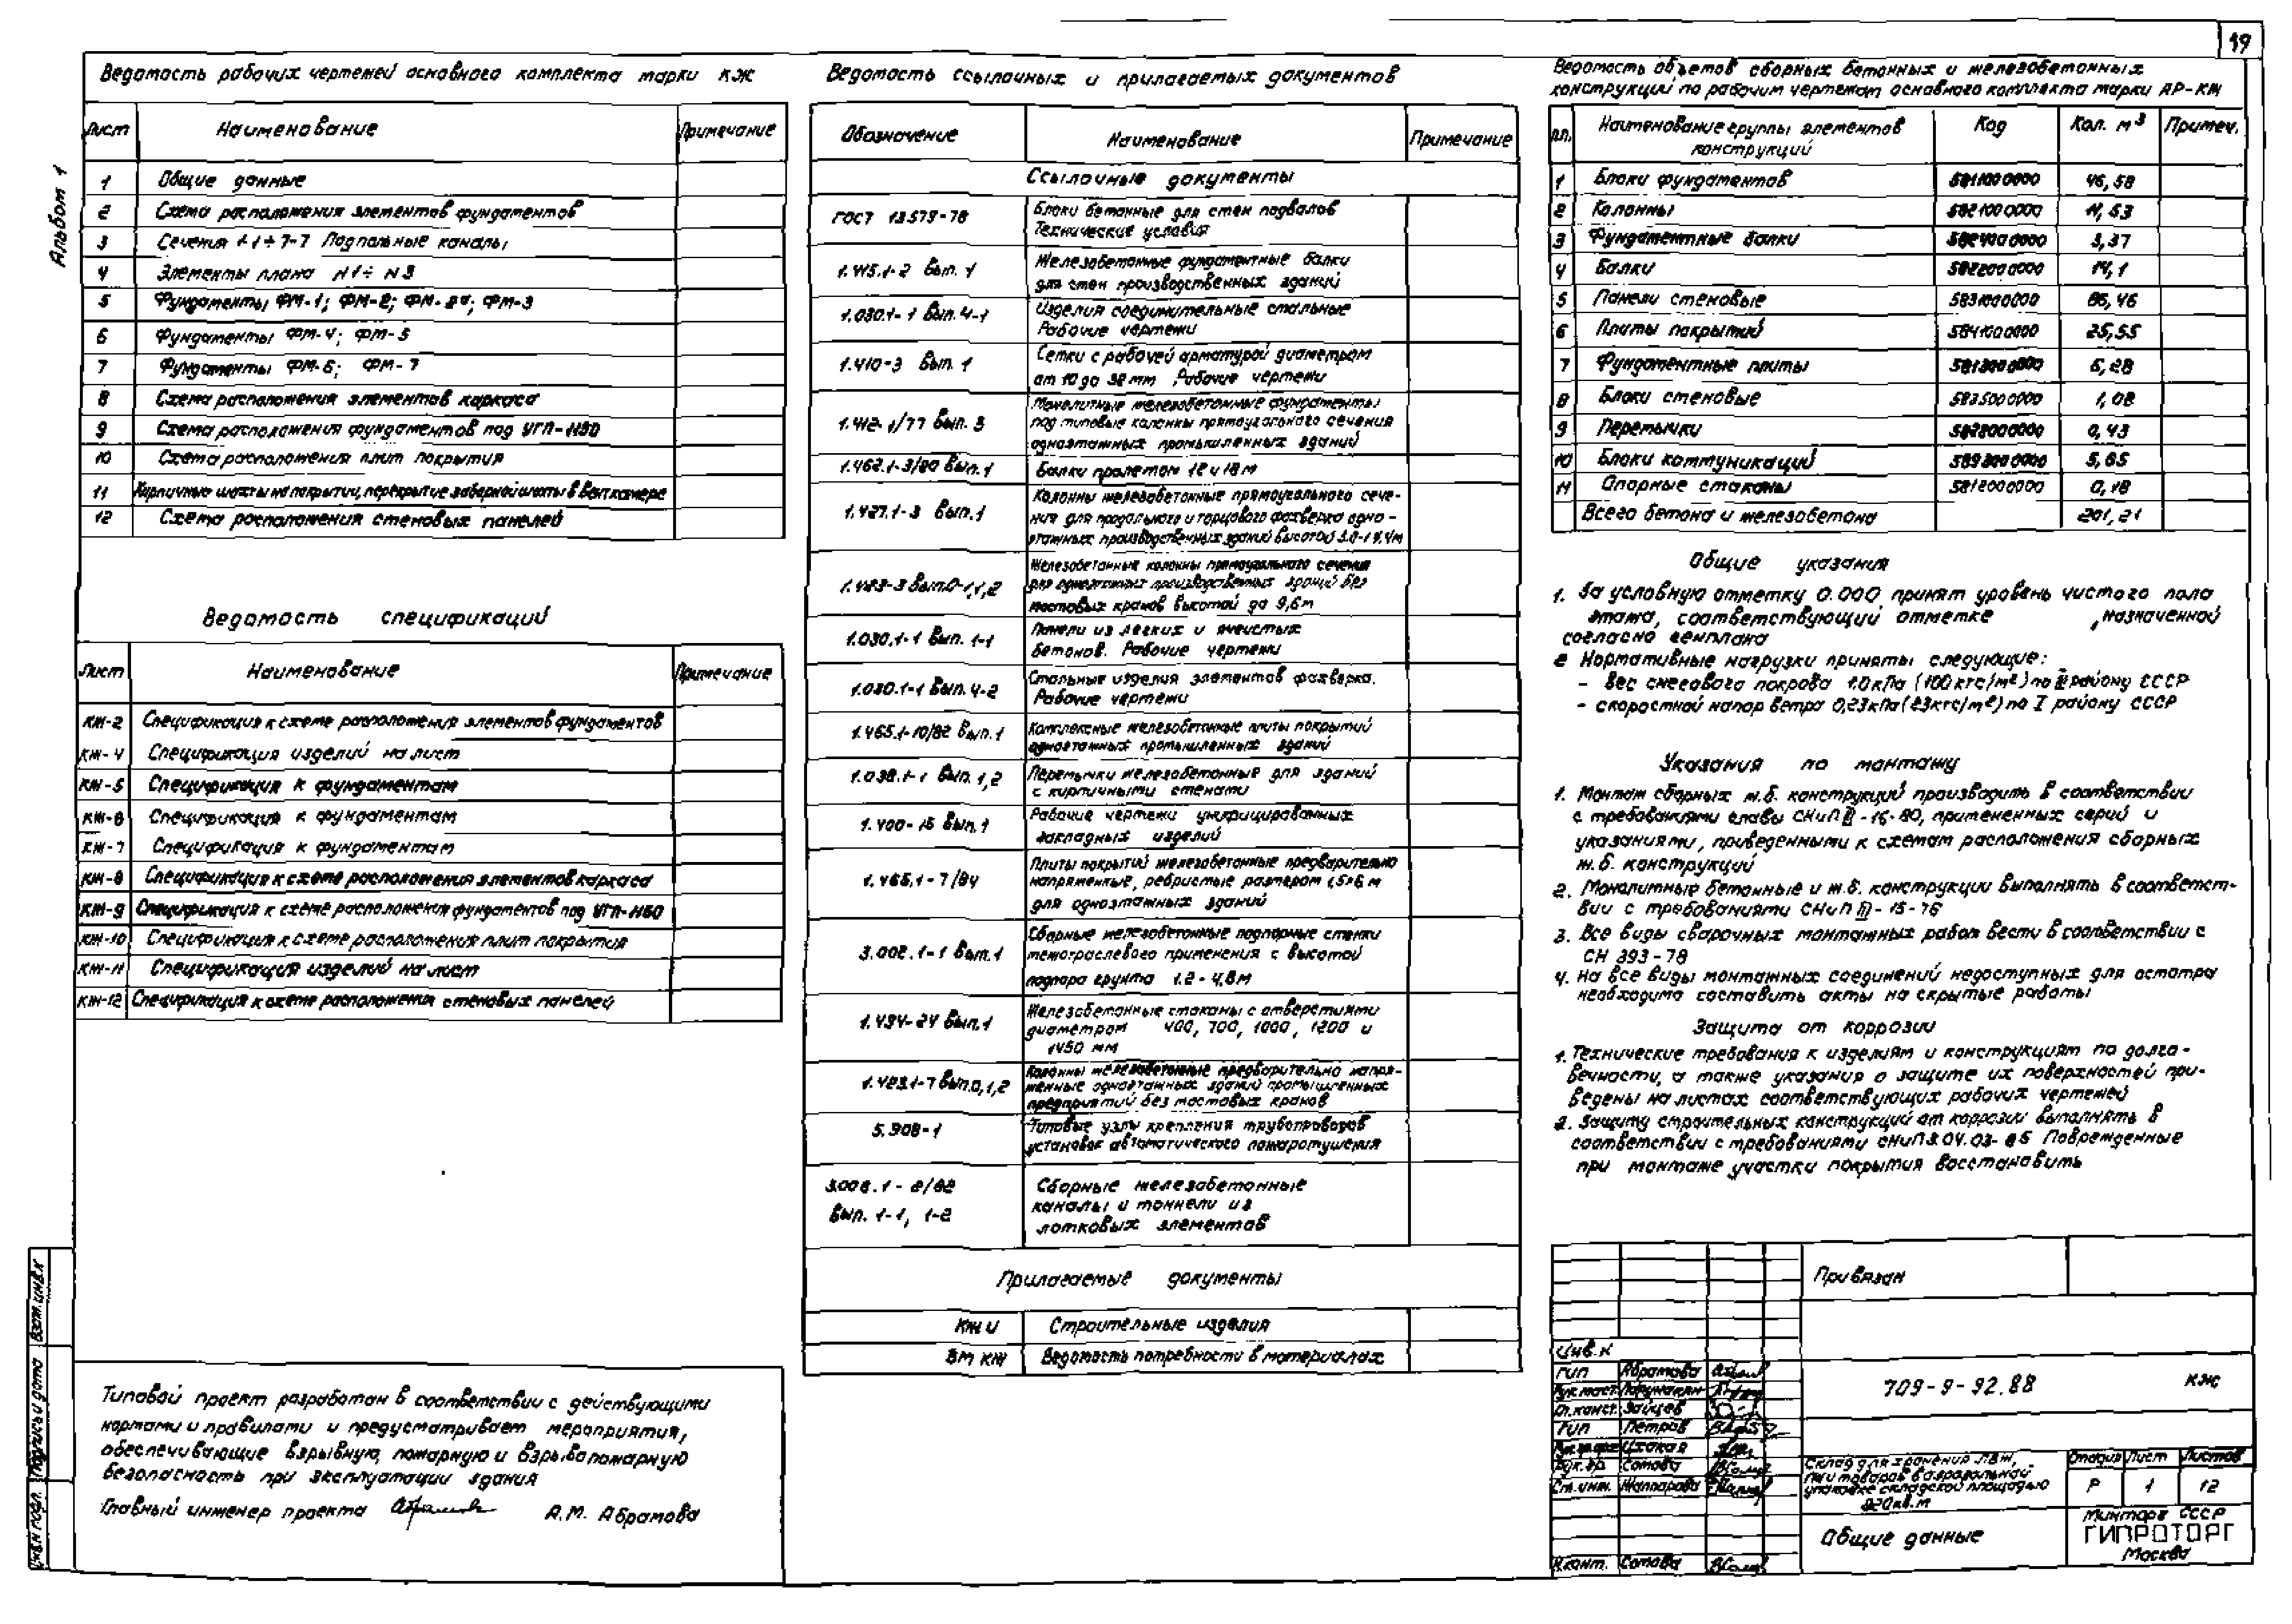 19
Альбом 1
Ведомость рабочих чертежей основного комплекта марки КЖ
Лист Наименование Примечание
1 Общие данные
2 Схема расположения элементов фундаментов
3 Сечения 1-1÷7-7 Подпольные каналы
4 Элементы плана N1÷N3
5 Фундаменты ФМ-1; ФМ-2; ФМ-2а; ФМ-3
6 Фундаменты ФМ-4; ФМ-5
7 Фундаменты ФМ-6; ФМ-7
8 Схема расположения элементов каркаса
9 Схема расположения фундаментов под УГП-
10 Схема расположения плит покрытия
11 Кирпичные шахты на покрытии, перекрытие заборной шахты в венткамере
12 Схема расположения стеновых панелей
Ведомость спецификаций
Лист Наименование Примечание
КЖ-2 Спецификация к схеме расположения элементов фундаментов
КЖ-4 Спецификация изделий на лист
КЖ-5 Спецификация к фундаментам
КЖ-6 Спецификация к фундаментам
КЖ-7 Спецификация к фундаментам
КЖ-8 Спецификация к схеме расположения элементов каркаса
КЖ-9 Спецификация к схеме расположения фундаментов под УГП-
КЖ-10 Спецификация к схеме расположения плит покрытия
КЖ-11 Спецификация изделий на лист
КЖ-12 Спецификация к схеме расположения стеновых панелей
Типовой проект разработан в соответствии с действующими
нормами и правилами и предусматривает мероприятия,
обеспечивающие взрывную, пожарную и взрывопожарную
безопасность при эксплуатации здания
Главный инженер проекта А.М. Абрамова
Ведомость ссылочных и прилагаемых документов
Обозначение Наименование Примечание
Ссылочные документы
ГОСТ 13579-78 Блоки бетонные для стен подвалов
Технические условия
1.415.1-2 Вып. 1 Железобетонные фундаментные балки
для стен производственных зданий
1.030.1-1 Вып. 4-1 Изделия соединительные стальные
Рабочие чертежи
1.410-3 Вып. 1 Сетки с рабочей арматурой диаметром
от 10 до 32 мм Рабочие чертежи
1.412-1/77 Вып. 3 Монолитные железобетонные фундаменты
под типовые колонны прямоугольного сечения
одноэтажных промышленных зданий
1.462.1-3/80 Вып. 1 Балки пролетом 12 и 18 м
1.427.1-3 Вып. 1 Колонны железобетонные прямоугольного сече-
ния для продольного и торцового фахверка одно-
этажных производственных зданий высотой 3.0-14.4м
1.423-3 Вып.0-1,1,2 Железобетонные колонны прямоугольного сечения
для одноэтажных производственных зданий без
мостовых кранов высотой до 9,6м
1.030.1-1 Вып. 1-1 Панели из легких и ячеистых
бетонов. Рабочие чертежи
1.030.1-1 Вып. 4-2 Стальные изделия элементов фахверка.
Рабочие чертежи
1.465.1-10/82 Вып. 1 Комплексные железобетонные плиты покрытий
одноэтажных промышленных зданий
1.038.1-1 Вып. 1,2 Перемычки железобетонные для зданий
с кирпичными стенами
1.400-15 Вып. 1 Рабочие чертежи унифицированных
закладных изделий
1.465.1-7/84 Плиты покрытий железобетонные предварительно
напряженные, ребристые размером 1,5×6 м
для одноэтажных зданий
3.002.1-1 Вып. 1 Сборные железобетонные подпорные стенки
межотраслевого применения с высотой
подпора грунта 1.2-4,8м
1.494-24 Вып. 1 Железобетонные стаканы с отверстиями
диаметром 400, 700, 1000, 1200 и
1450 мм
1.423.1-7 Вып.0,1,2 Колонны железобетонные предварительно напря-
женные одноэтажных зданий промышленных
предприятий без мостовых кранов
5.908-1 Типовые узлы крепления трубопроводов
установок автоматического пожаротушения
3.006.1-2/82
Вып. 1-1, 1-2
Сборные железобетонные
каналы и тоннели из
лотковых элементов
Прилагаемые документы
КЖ И Строительные изделия
ВМ КЖ Ведомость потребности в материалах
Ведомость объемов сборных бетонных и железобетонных
конструкций по рабочим чертежам основного комплекта марки АР-КЖ
п.п. Наименование группы элементов конструкций Код Кол. м³ Примеч.
1 Блоки фундаментов 5811000000 46,58
2 Колонны 5821000000 11,53
3 Фундаментные балки 5824000000 3,37
4 Балки 5822000000 14,1
5 Панели стеновые 5831000000 86,46
6 Плиты покрытий 5841000000 25,55
7 Фундаментные плиты 5813000000 6,28
8 Блоки стеновые 5835000000 1,08
9 Перемычки 5828000000 0,43
10 Блоки коммуникаций 5893000000 5,65
11 Опорные стаканы 5812000000 0,18
Всего бетона и железобетона 201,21
Общие указания
1. За условную отметку 0.000 принят уровень чистого пола
этажа, соответствующий отметке , назначенной
согласно генплана
2 Нормативные нагрузки приняты следующие:
- Вес снегового покрова 1.0кПа (100кгс/м²) по III району СССР
- скоростной напор ветра 0,23кПа (23кгс/м²) по I району СССР
Указания по монтажу
1. Монтаж сборных ж.б. конструкций производить в соответствии
с требованиями главы СНиП III-16-80, примененных серий и
указаниями, приведенными к схемам расположения сборных
ж.б. конструкций
2. Монолитные бетонные и ж.б. конструкции выполнять в соответст-
вии с требованиями СНиП III-15-76
3. Все виды сварочных монтажных работ вести в соответствии с
СН 393-78
4. На все виды монтажных соединений недоступных для осмотра
необходимо составить акты на скрытые работы
Защита от коррозии
1. Технические требования к изделиям и конструкциям по долго-
вечности, а также указания о защите их поверхностей при-
ведены на листах соответствующих рабочих чертежей
2. Защиту строительных конструкций от коррозии выполнять в
соответствии с требованиями СНиП 3.04.03-85 Поврежденные
при монтаже участки покрытия восстановить
Привязан
Инв.N
ГИП Абрамова
Рук.маст.
Гл.конст. Зайцев
ГИП Петров
Цхакая
Рук.гр. Сотова
Ст.инж. Жаппарова
Н.конт. Сотова
709-9-92.88 КЖ
Склад для хранения ЛВЖ,
ГЖ и товаров в аэрозольной
упаковке складской площадью
820кв.м
Стадия Лист Листов
Р 1 12
Общие данные
Минторг СССР
ГИПРОТОРГ
Москва
Взам.инв.N
Подпись и дата
Инв.N подл.